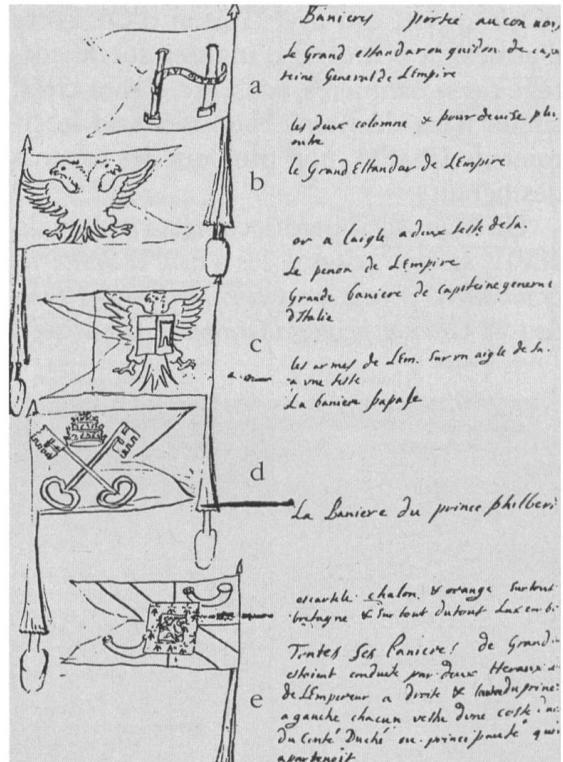 Banieres portée au convoi
Le Grand estandar ou guidon de
teine General de L'Empire
a
les deux colomne & pour devise plu
outre
le Grand Estandar de L'Empire
b
or a laigle a deux teste de sa.
Le penon de L'Empire
Grande baniere de capiteine general
d'Italie
c
les armes de L'Em. sur un aigle de sa.
a une teste
La baniere papale
d
La Baniere du prince philbert
escartele chalon & orange surtout
bretagne & sur tout du tout Luxembᵍ
Toutes ses Banieres de Grand
estoient conduite par deux Heraux
de L'Empereur a droite & du prince
a gauche chacun vestu d'une coste
e
du Conté Duché ou principauté qui
apartenoit